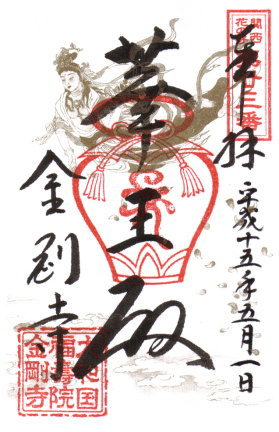 関西
花の寺
第廿三番
奉拝
平成十五年五月一日
華王殿
金剛寺
大和国
福壽院
金剛寺